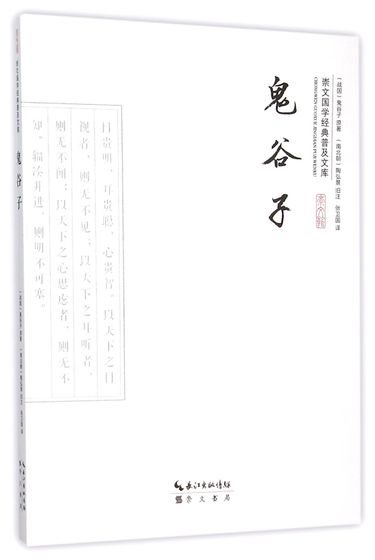 崇文国学经典普及文库
CHONGWEN GUOXUE JINGDIAN PUJI WENKU
鬼谷子
〔战国〕鬼谷子 原著 〔南北朝〕陶弘景 旧注
目贵明，耳贵聪，心贵智。以天下之目
视者，则无不见；以天下之耳听者，
则无不闻；以天下之心思虑者，则无不
知。辐凑并进，则明不可塞。
长江出版传媒
崇文书局
崇文国学经典普及文库
鬼谷子